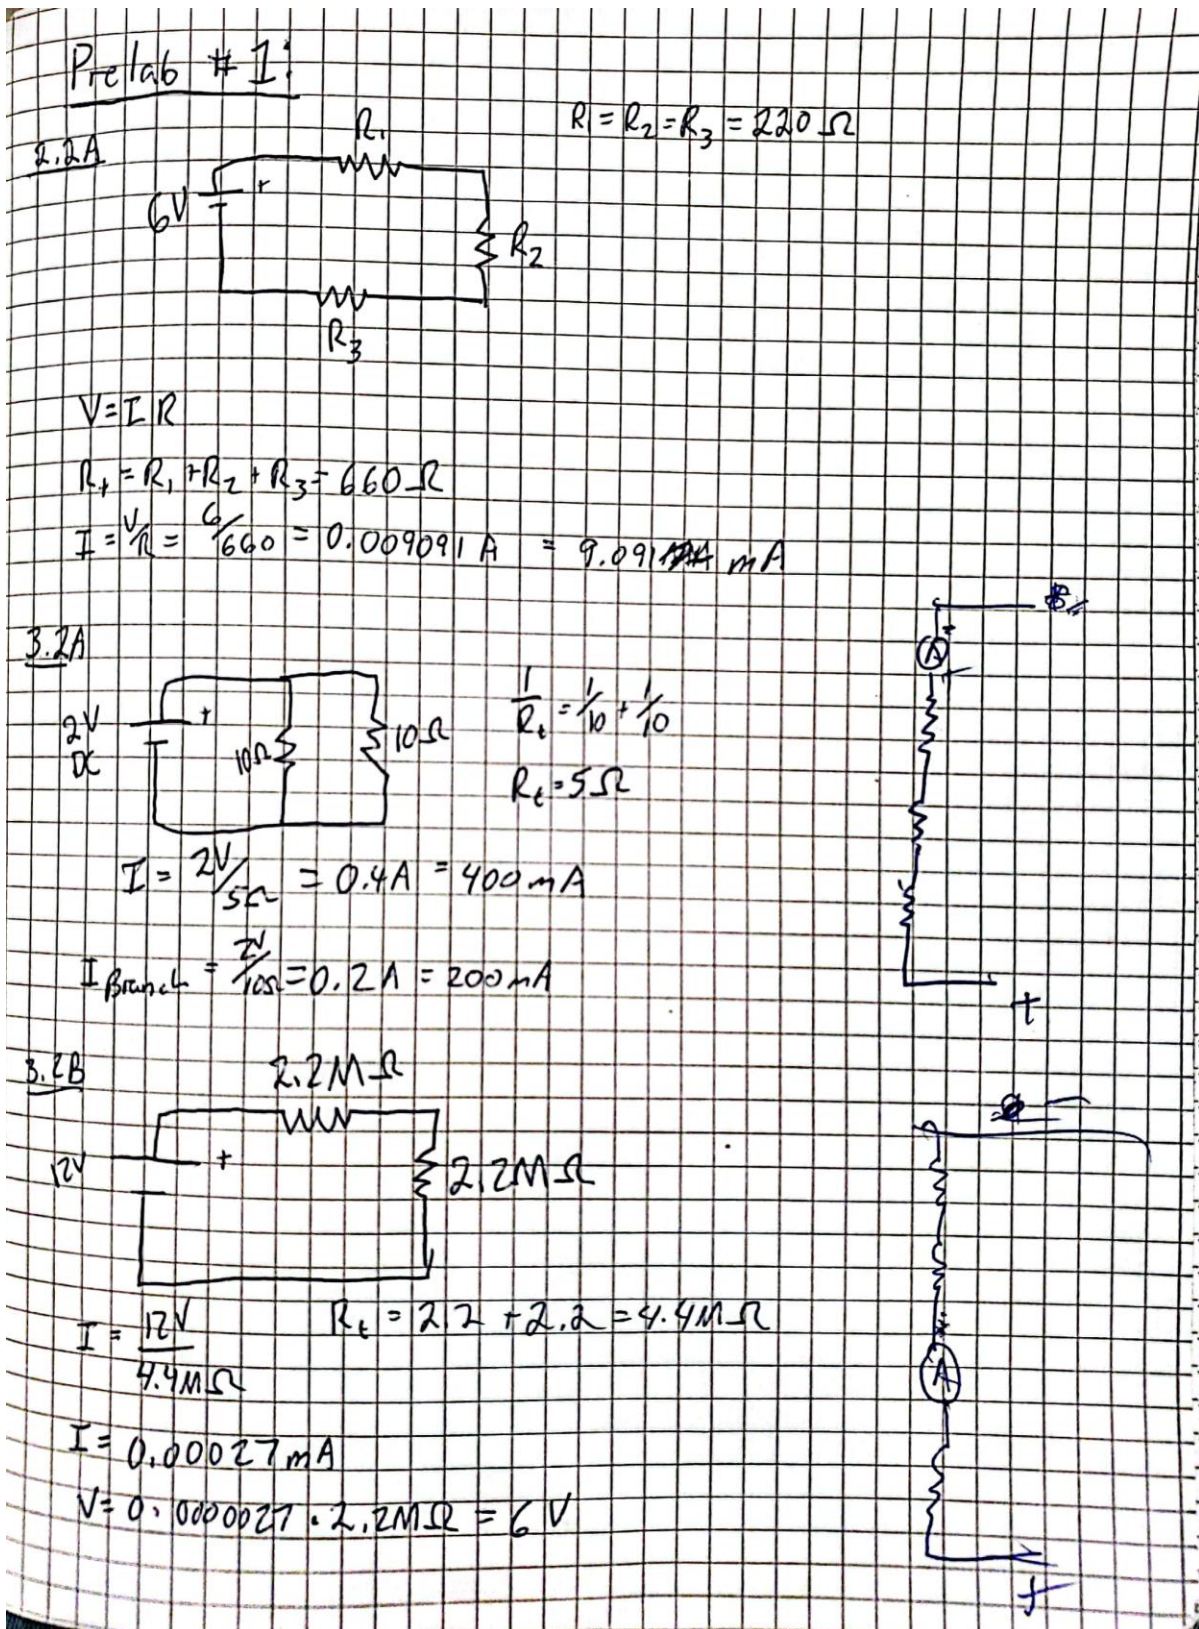 Prelab #1:
R1 = R2 = R3 = 220 Ω
2.2A
R1
6V
+
R2
R3
V=IR
Rt = R1 + R2 + R3 = 660 Ω
I = V/R = 6/660 = 0.009091 A = 9.091 mA
3.2A
2V
DC
+
10Ω
10Ω
1/Rt = 1/10 + 1/10
Rt = 5Ω
I = 2V/5Ω = 0.4A = 400mA
I Branch = 2V/10Ω = 0.2A = 200mA
A
+
3.2B
2.2MΩ
12V
+
2.2MΩ
Rt = 2.2 + 2.2 = 4.4MΩ
I = 12V/4.4MΩ
I = 0.00027mA
V = 0.0000027 · 2.2MΩ = 6V
A
+